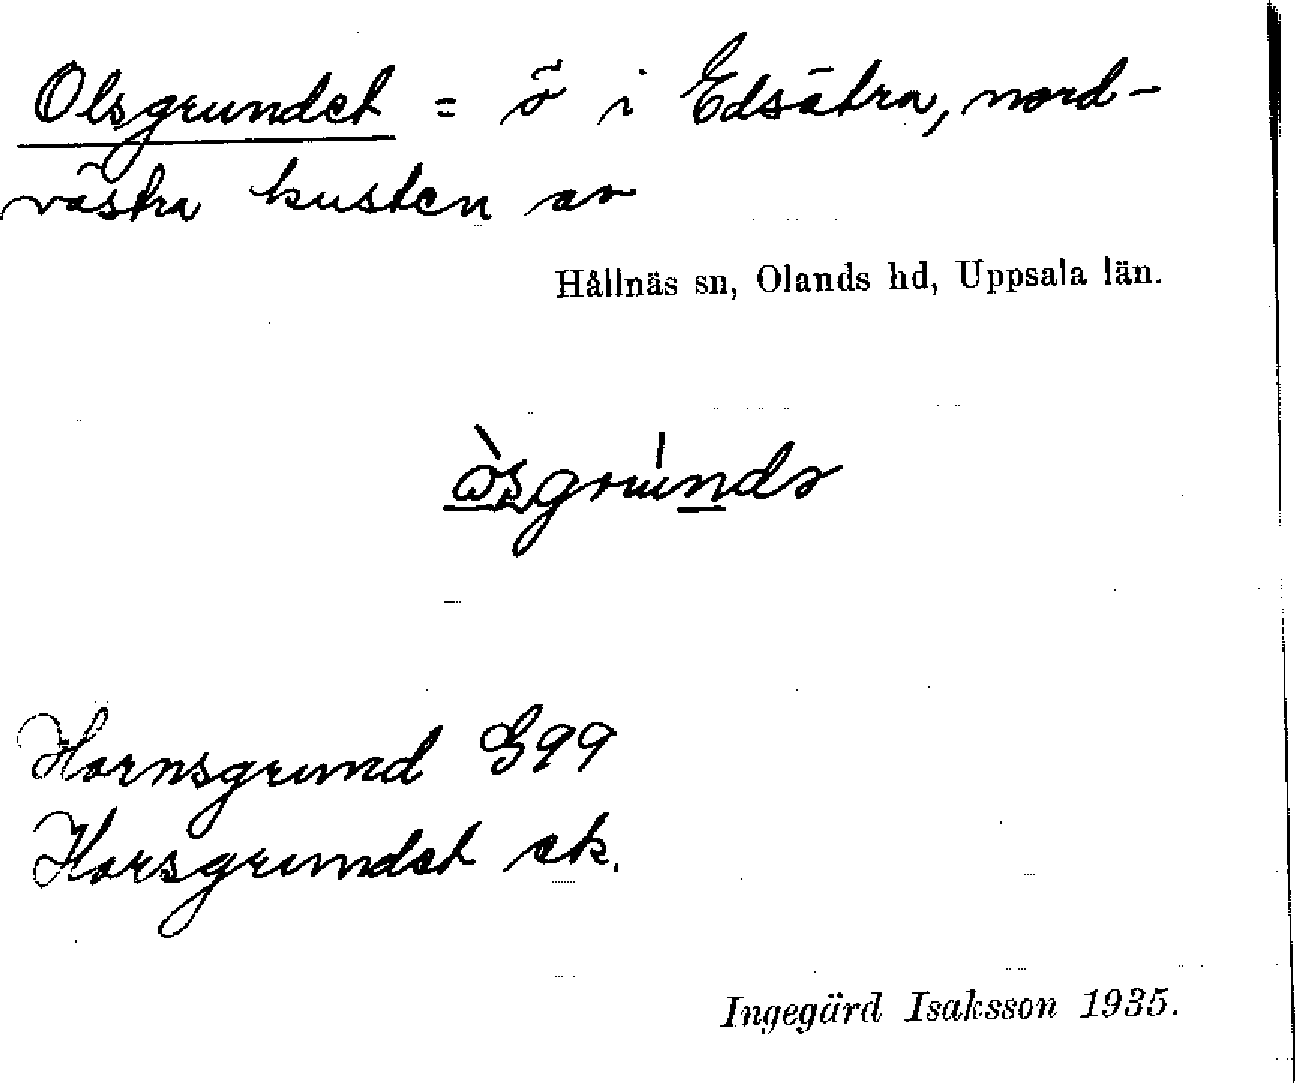 Olsgrundet = ö i Edsätra, nord-
västra kusten av
Hållnäs sn, Olands hd, Uppsala län.
Hornsgrund G99
Horsgrundet ek.
Ingegärd Isaksson 1935.